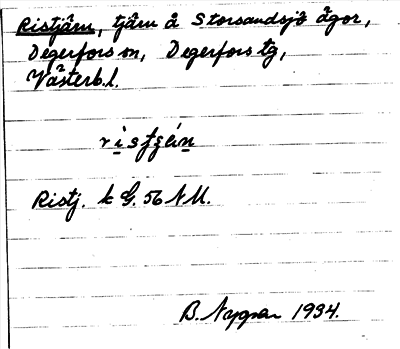 Ristjärn, tjärn å Storsandsjö ägor,
Degerfors sn, Degerfors tg,
Västerb. l.
Ristj. k G. 56 NU.
B. Nygren 1934.